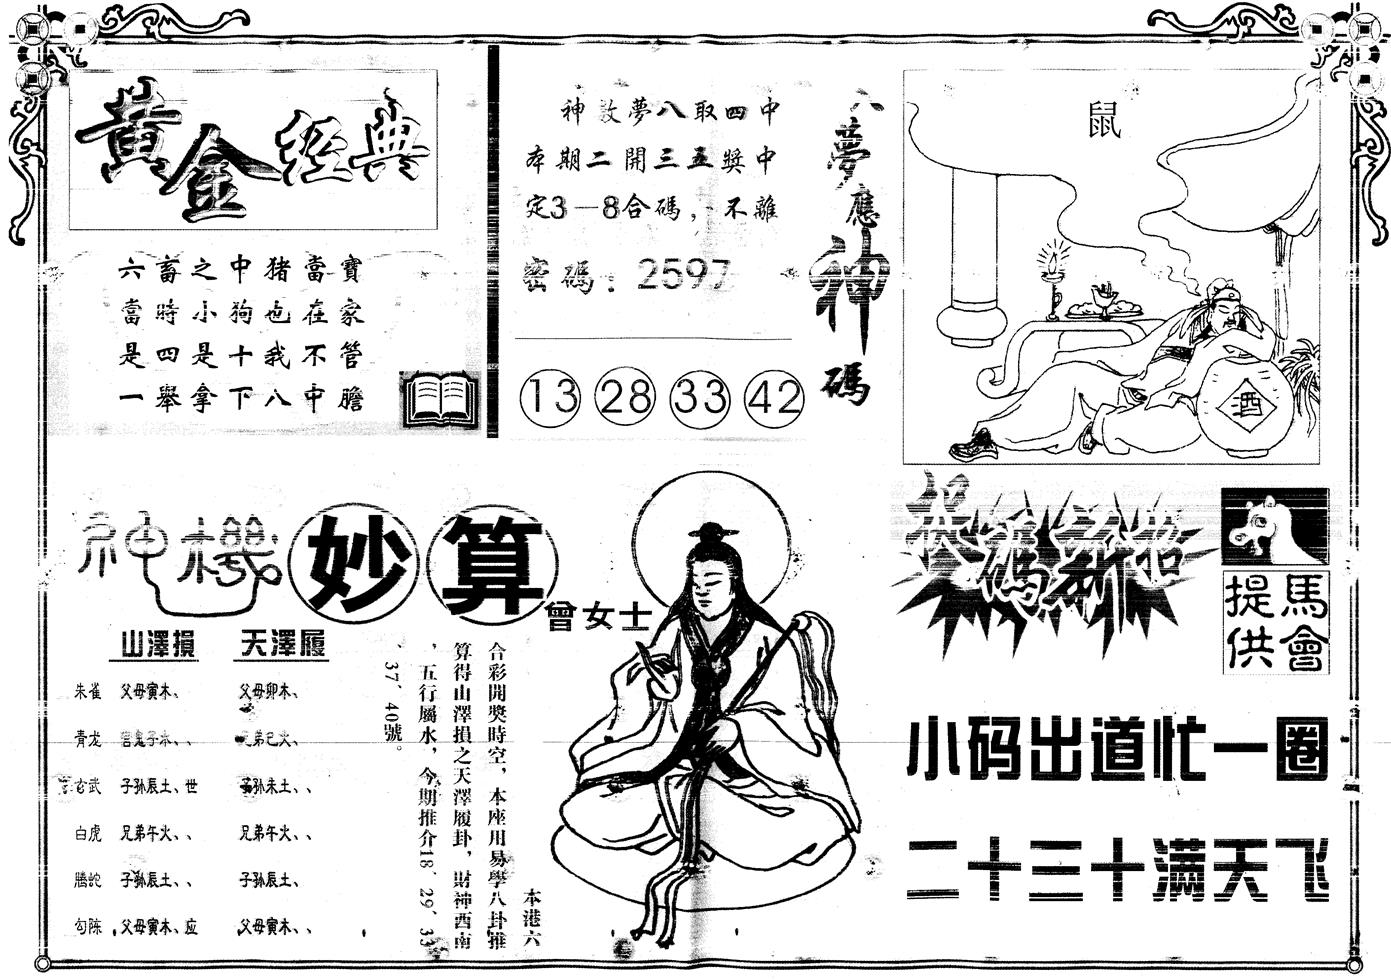 黃金經典
六畜之中猪當寶
當時小狗也在家
是四是十我不管
一舉拿下八中膽
神數夢八取四中
本期二開三五獎中
定3—8合碼，不離
密碼：2597
13 28 33 42
夢應神碼
鼠
酒
神機妙算
曾女士
山澤損 天澤履
朱雀 父母寅木、、 父母卯木、
青龙 子水、、 兄弟巳火、
玄武 子孙辰土、世 子孙未土、、
白虎 兄弟午火、、 兄弟午火、、
腾蛇 子孙辰土、、 子孙辰土、
勾陈 父母寅木、应 父母寅木、、
本港六
合彩開獎時空，本座用易學八卦推
算得山澤損之天澤履卦，財神西南
，五行屬水，今期推介18、29、33
、37、40號。
碼新招
馬會
提供
小码出道忙一圈
二十三十满天飞